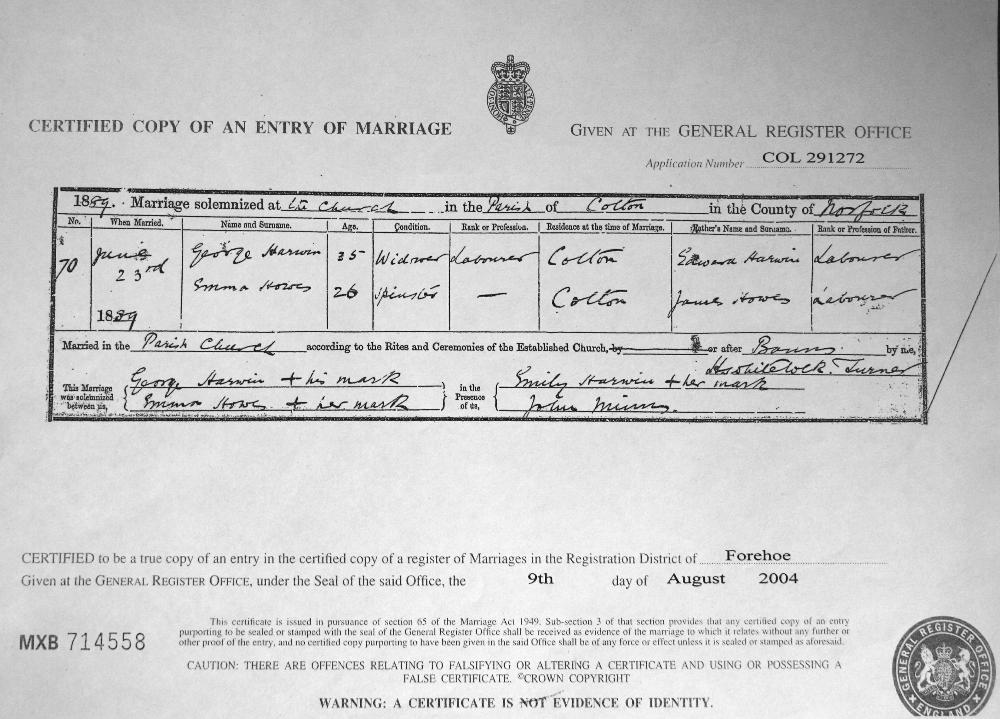 CERTIFIED COPY OF AN ENTRY OF MARRIAGE
GIVEN AT THE GENERAL REGISTER OFFICE
Application Number COL 291272
1889. Marriage solemnized at the Church in the Parish of Colton in the County of Norfolk
No. When Married. Name and Surname. Age. Condition. Rank or Profession. Residence at the time of Marriage. Father's Name and Surname. Rank or Profession of Father.
70 June 23rd 1889 George Harwin 35 Widower Labourer Colton Edward Harwin Labourer
Emma Howes 26 Spinster — Colton James Howes Labourer
Married in the Parish Church according to the Rites and Ceremonies of the Established Church, by or after Banns by me,
Turner
This Marriage was solemnized between us, George Harwin + his mark
Emma Howes + her mark
in the Presence of us, Emily Harwin + her mark
John
CERTIFIED to be a true copy of an entry in the certified copy of a register of Marriages in the Registration District of Forehoe
Given at the GENERAL REGISTER OFFICE, under the Seal of the said Office, the 9th day of August 2004
MXB 714558
This certificate is issued in pursuance of section 65 of the Marriage Act 1949. Sub-section 3 of that section provides that any certified copy of an entry
purporting to be sealed or stamped with the seal of the General Register Office shall be received as evidence of the marriage to which it relates without any further or
other proof of the entry, and no certified copy purporting to have been given in the said Office shall be of any force or effect unless it is sealed or stamped as aforesaid.
CAUTION: THERE ARE OFFENCES RELATING TO FALSIFYING OR ALTERING A CERTIFICATE AND USING OR POSSESSING A
FALSE CERTIFICATE. ©CROWN COPYRIGHT
WARNING: A CERTIFICATE IS NOT EVIDENCE OF IDENTITY.
GENERAL REGISTER OFFICE ENGLAND